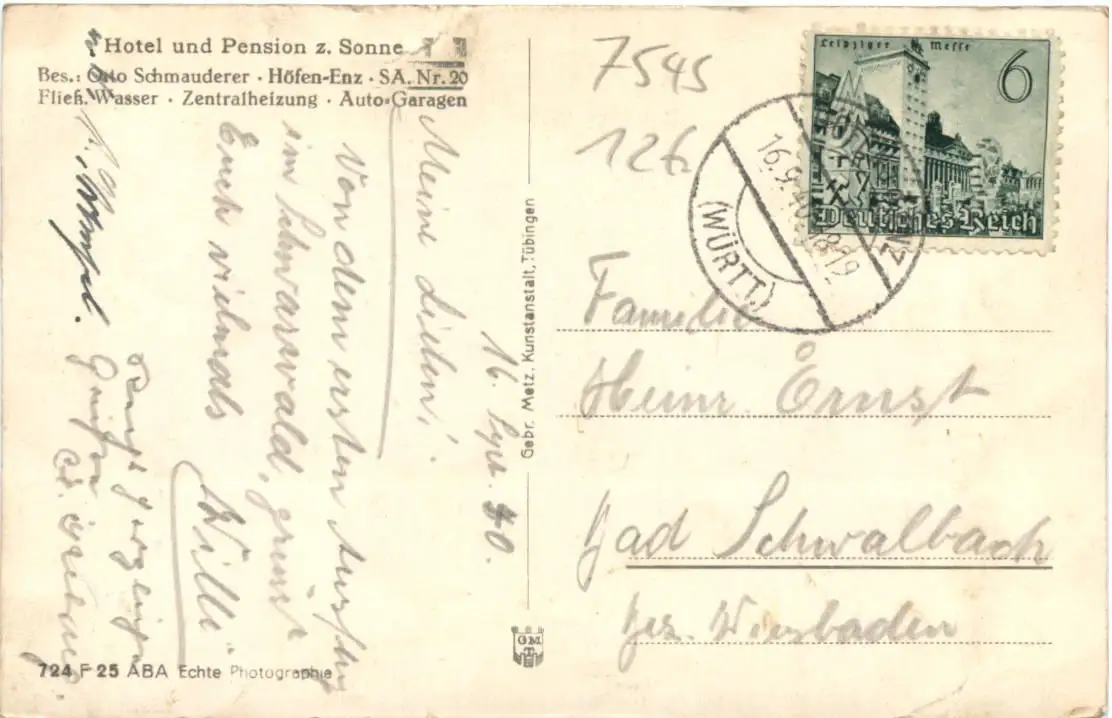 Hotel und Pension z. Sonne
Bes.: Otto Schmauderer · Höfen-Enz · SA. Nr. 20
Fließ. Wasser · Zentralheizung · Auto-Garagen
16. Sept. 40.
Meine Lieben!
Von dem ersten Ausflug
im Schwarzwald, grüsst
Euch vielmals
Willi.
724 F 25 ABA Echte Photographie
Gebr. Metz, Kunstanstalt, Tübingen
GM
7545
126
Leipziger Messe
6
Deutsches Reich
16.9.40
(WÜRTT.)
Familie
Heinr. Ernst
Bad Schwalbach
Bez. Wiesbaden